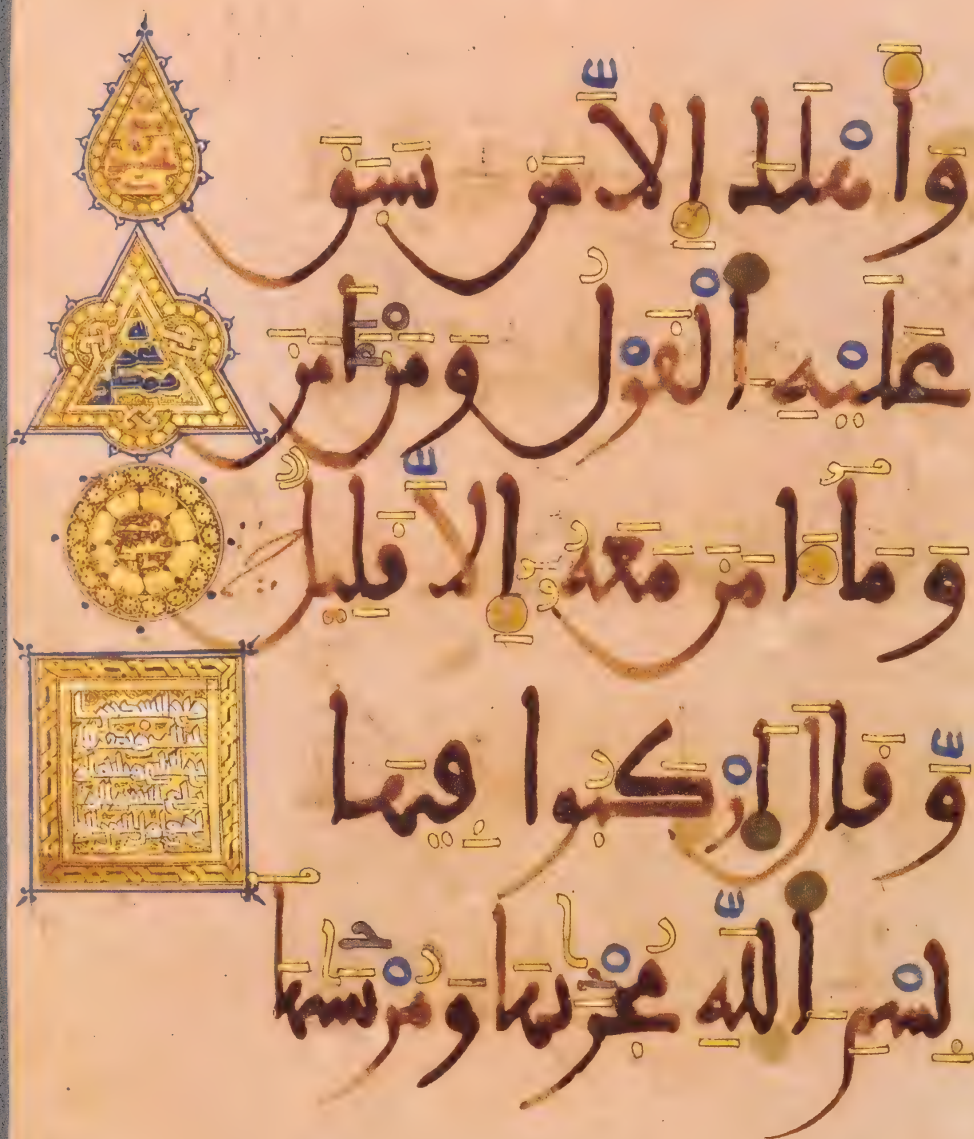 وَأَهْلَكَ إِلَّا مَن سَبَقَ
عَلَيْهِ اَلْقَوْلُ وَمَنَ ـامَنَ
وَمَآ ءَامَنَ مَعَهُۥ إِلَّا قَلِيلٌ
وَّقَالَ اَرْكَبُوا فِيهَا
بِسْمِ اِللَّهِ مُجْرَىٰهَا وَمُرْسَىٰهَآ